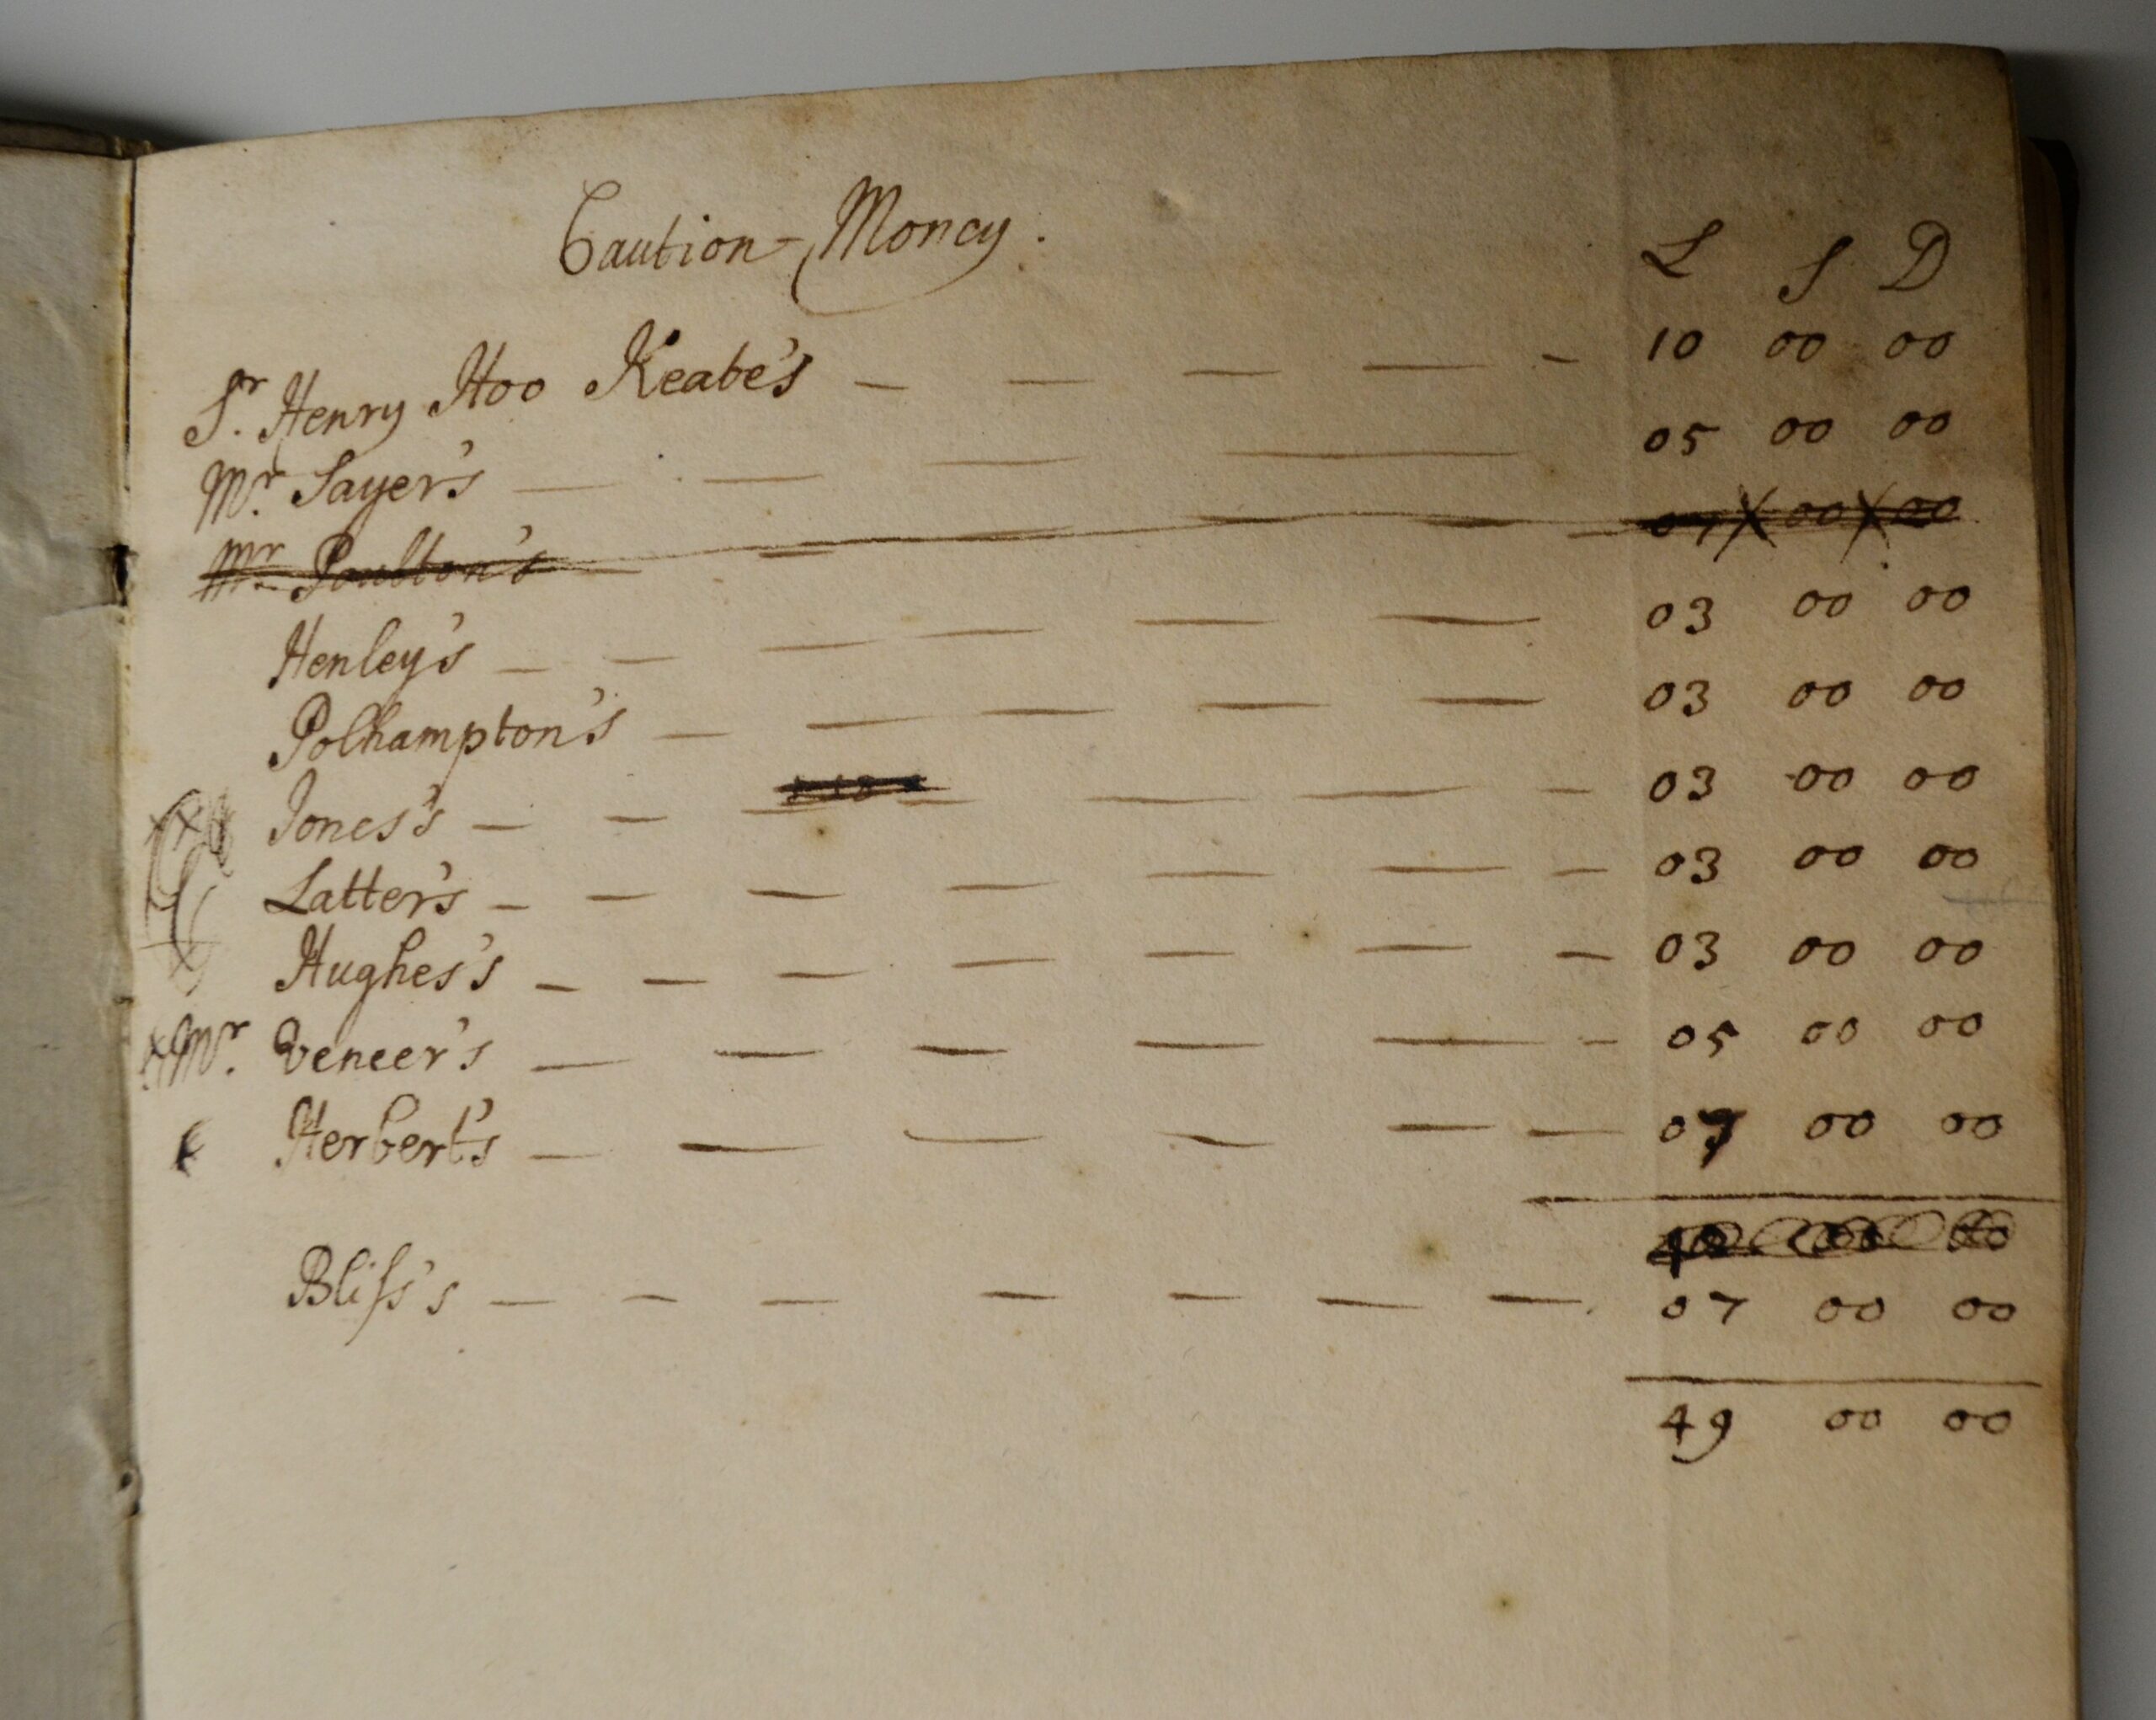 Caution-Money.
L S D
Sr. Henry Hoo Keate's — — — — - 10 00 00
Mr. Sayer's — — — — 05 00 00
Mr. Poulton's — — — — — 07 00 00
Henley's — — — — — — 03 00 00
Polhampton's — — — — — 03 00 00
Jones's — — — — — — 03 00 00
Latter's — — — — — — — 03 00 00
Hughes's — — — — — — — 03 00 00
Mr. Veneer's — — — — — - 05 00 00
Herbert's — — — — — — 07 00 00
Bliſs's — — — — — — — 07 00 00
49 00 00